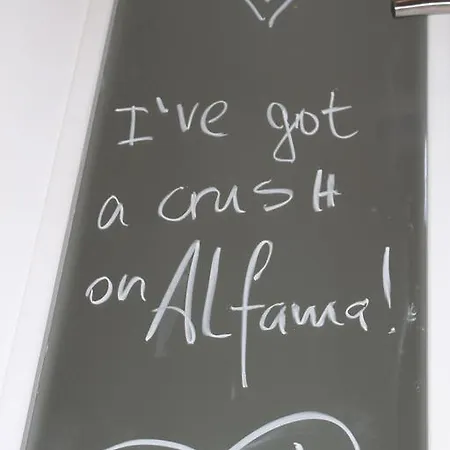 I've got
a crush
on ALfama!